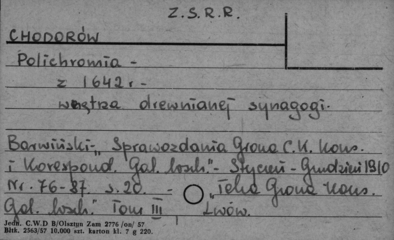 Z.S.R.R.
CHODORÓW
Polichromia -
z 1642 r -
wnętrza drewnianej synagogi.
Barwiński - „Sprawozdania Grona C.K. Kons.
i Korespond. Gal. wsch." - Styczeń - Grudzień 1910
Nr. 76-87. s. 20. - „Teka Grona Kons.
Gal. wsch." Tom III Lwów.
Jedn. C.W.D B/Olsztyn Zam 2776 /on/ 57
Błtk. 2563/57 10.000 szt. karton kl. 7 g 220.